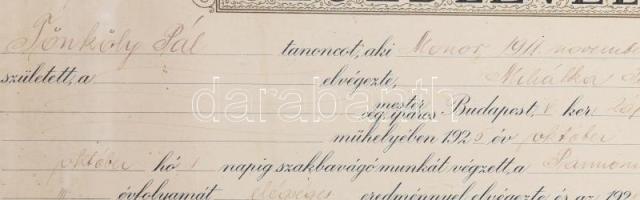 Tönköly Pál tanoncot, aki Monor 1911 novemb
született, a elvégezte, Mihátka
mester
vég. iparos Budapest, V ker.
műhelyében 192 év október
október hó 1 napig szakbavágó munkát végzett, a Pannoni
III évfolyamát elégséges eredménnyel elvégezte és az 192
darabanth.com